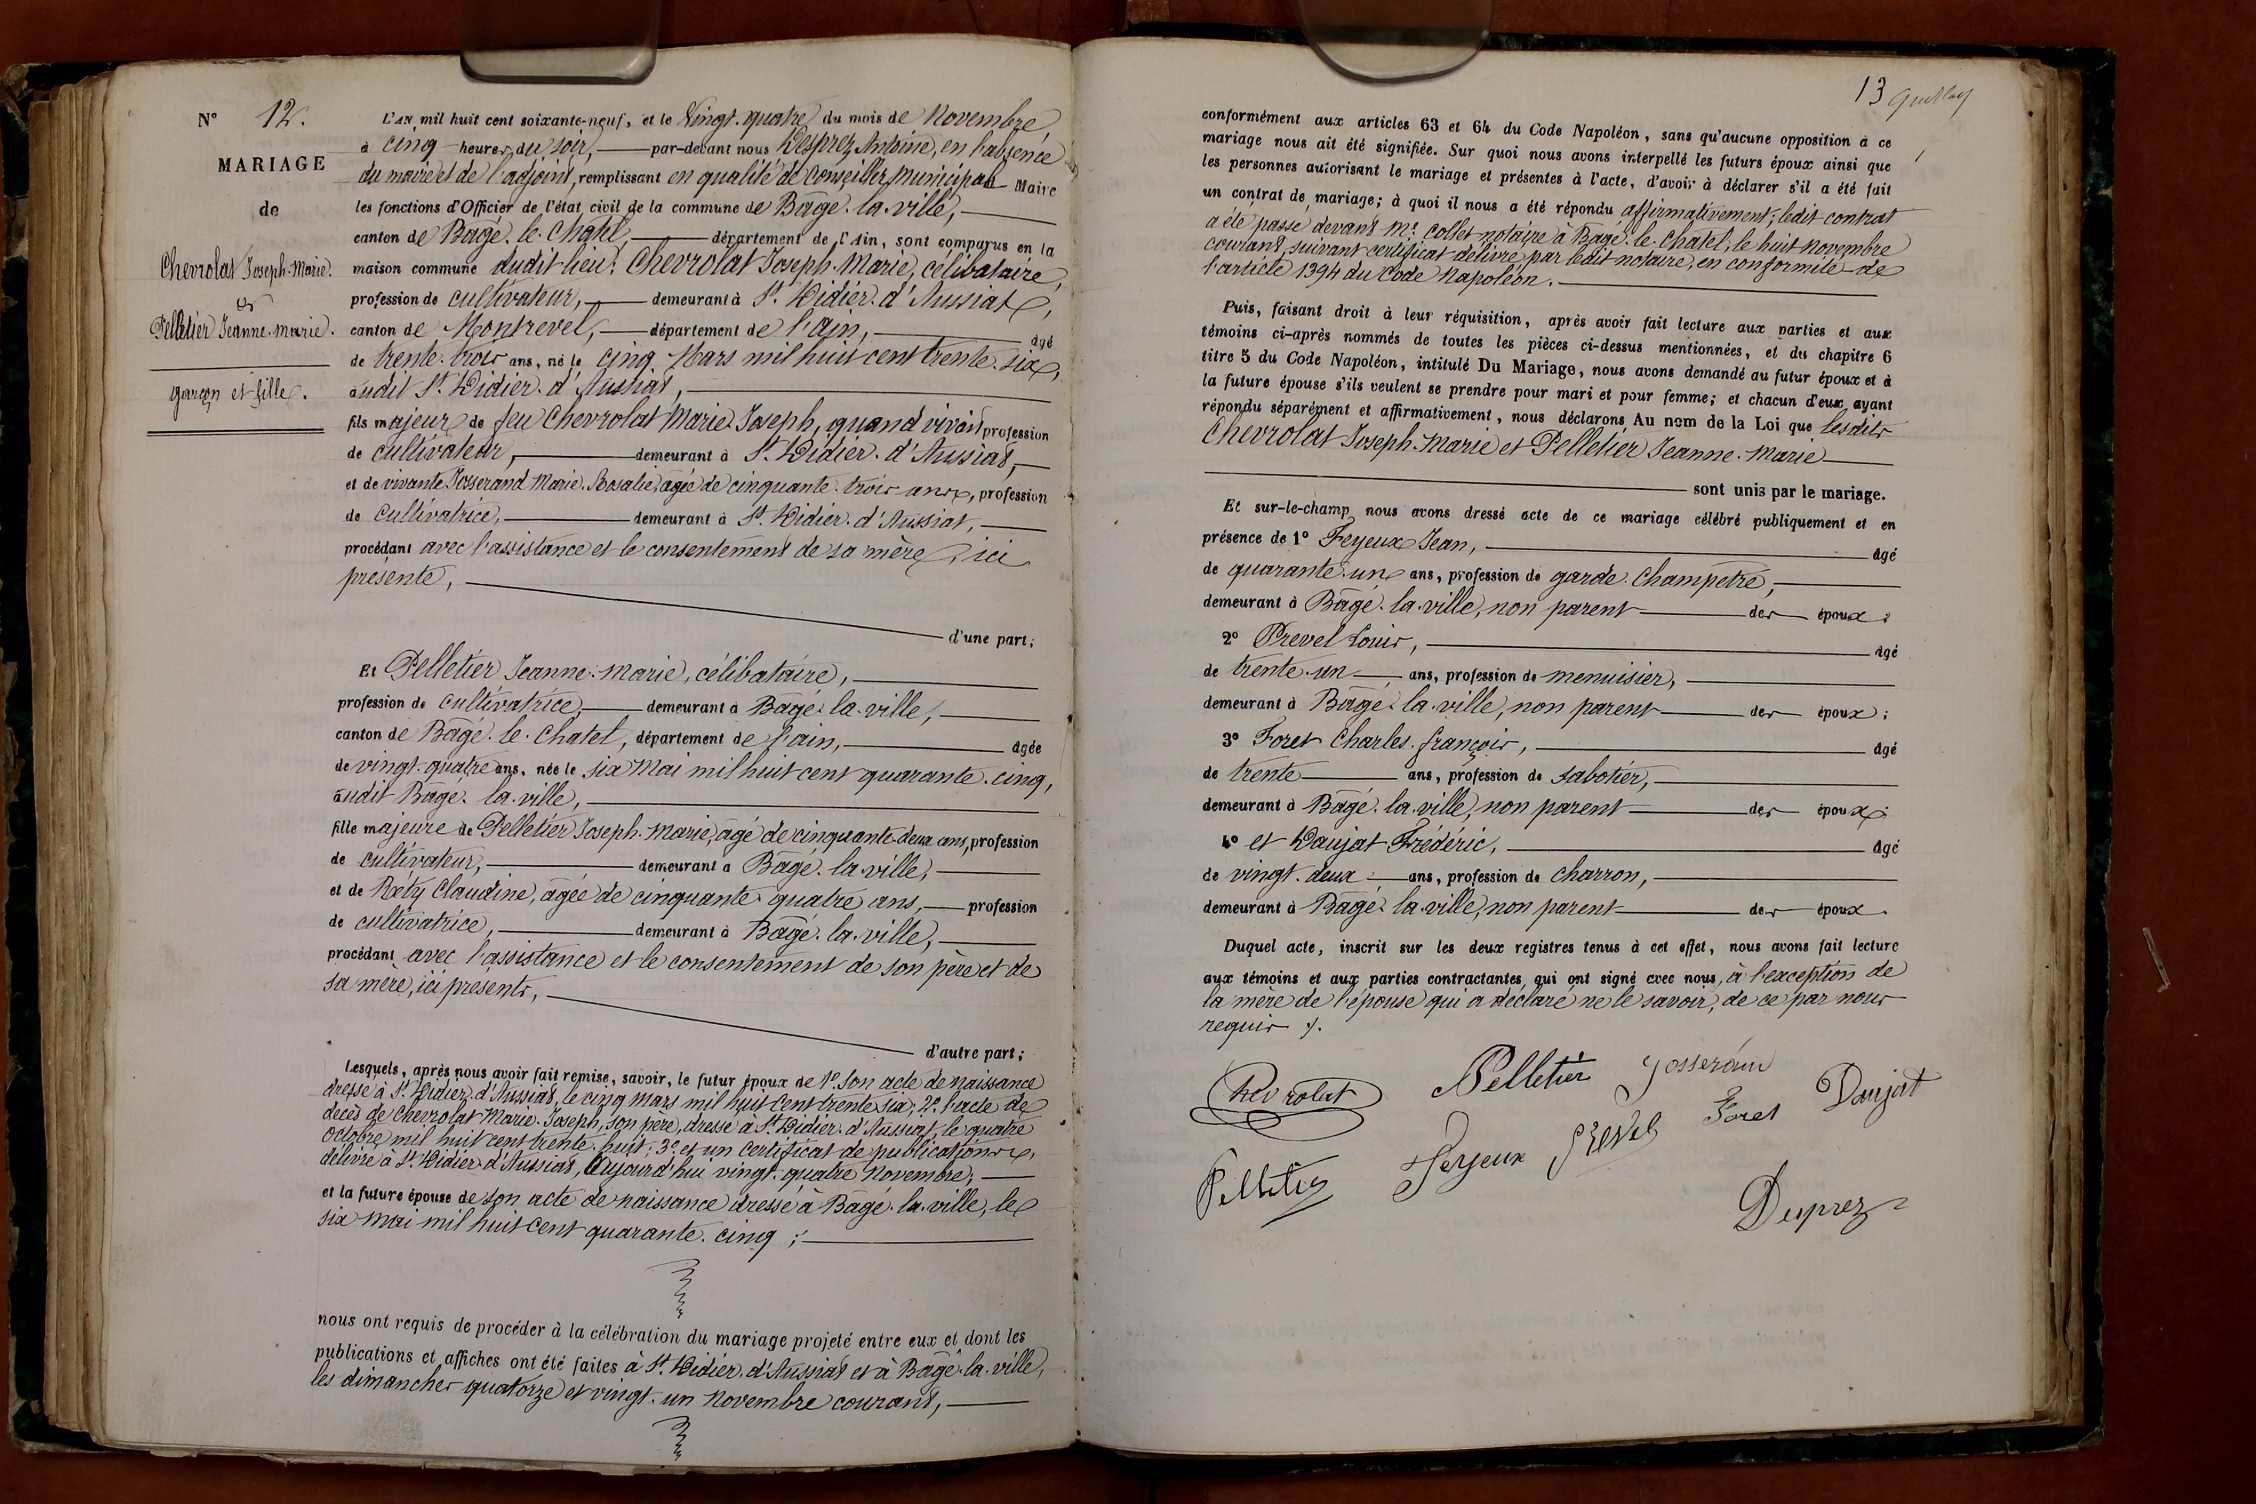 N° 12.
MARIAGE
de
Chevrolat Joseph-Marie.
et
Pelletier Jeanne-marie.
garçon et fille.
L'AN mil huit cent soixante-neuf, et le Vingt-quatre du mois de Novembre,
à cinq heures du soir, par-devant nous Desprez Antoine, en l'absence
du maire et de l'adjoint, remplissant en qualité de Conseiller municipal Maire
les fonctions d'Officier de l'état civil de la commune de Bâgé-la-ville,
canton de Bâgé-le-Chatel, département de l'Ain, sont comparus en la
maison commune dudit lieu: Chevrolat Joseph-Marie, célibataire,
profession de cultivateur, demeurant à St Didier-d'Aussiat,
canton de Montrevel, département de l'ain, âgé
de trente-trois ans, né le cinq Mars mil huit cent trente-six,
audit St Didier-d'Aussiat,
fils majeur de feu Chevrolat Marie-Joseph, quand vivait profession
de cultivateur, demeurant à St Didier-d'Aussiat,
et de vivante Josserand Marie-Rosalie, âgée de cinquante-trois ans, profession
de cultivatrice, demeurant à St Didier-d'Aussiat,
procédant avec l'assistance et le consentement de sa mère, ici
présente,
d'une part;
Et Pelletier Jeanne-Marie, célibataire,
profession de cultivatrice, demeurant à Bâgé-la-ville,
canton de Bâgé-le-Chatel, département de l'ain, âgée
de vingt-quatre ans, née le six Mai mil huit cent quarante-cinq,
audit Bâgé-la-ville,
fille majeure de Pelletier Joseph-Marie, âgé de cinquante-deux ans, profession
de cultivateur, demeurant à Bâgé-la-ville,
et de Réty Claudine, âgée de cinquante-quatre ans, profession
de cultivatrice, demeurant à Bâgé-la-ville,
procédant avec l'assistance et le consentement de son père et de
sa mère, ici présents,
d'autre part;
Lesquels, après nous avoir fait remise, savoir, le futur époux de 1° Son acte de naissance
dressé à St Didier-d'Aussiat, le cinq mars mil huit cent trente-six; 2° l'acte de
décès de Chevrolat Marie-Joseph, son père, dressé à St Didier-d'Aussiat, le quatre
Octobre mil huit cent trente-huit; 3° et un certificat de publications
délivré à St Didier-d'Aussiat, Aujourd'hui vingt-quatre Novembre;
et la future épouse de son acte de naissance dressé à Bâgé-la-ville, le
six mai mil huit cent quarante-cinq;
nous ont requis de procéder à la célébration du mariage projeté entre eux et dont les
publications et affiches ont été faites à St Didier-d'Aussiat et à Bâgé-la-ville,
les dimanches quatorze et vingt-un Novembre courant,
13
conformément aux articles 63 et 64 du Code Napoléon, sans qu'aucune opposition à ce
mariage nous ait été signifiée. Sur quoi nous avons interpellé les futurs époux ainsi que
les personnes autorisant le mariage et présentes à l'acte, d'avoir à déclarer s'il a été fait
un contrat de mariage; à quoi il nous a été répondu affirmativement; ledit contrat
a été passé devant Me Collet notaire à Bâgé-le-Chatel, le huit novembre
courant, suivant certificat délivré par ledit notaire, en conformité de
l'article 1394 du Code Napoléon.
Puis, faisant droit à leur réquisition, après avoir fait lecture aux parties et aux
témoins ci-après nommés de toutes les pièces ci-dessus mentionnées, et du chapitre 6
titre 5 du Code Napoléon, intitulé Du Mariage, nous avons demandé au futur époux et à
la future épouse s'ils veulent se prendre pour mari et pour femme; et chacun d'eux ayant
répondu séparément et affirmativement, nous déclarons Au nom de la Loi que lesdits
Chevrolat Joseph-Marie et Pelletier Jeanne-Marie
sont unis par le mariage.
Et sur-le-champ nous avons dressé acte de ce mariage célébré publiquement et en
présence de 1° Feyeux Jean, âgé
de quarante-un ans, profession de garde-Champêtre,
demeurant à Bâgé-la-ville, non parent des époux;
2° Prevel Louis, âgé
de trente-un ans, profession de menuisier,
demeurant à Bâgé-la-ville, non parent des époux;
3° Foret Charles-françois, âgé
de trente ans, profession de sabotier,
demeurant à Bâgé-la-ville, non parent des époux;
4° et Daujat Frédéric, âgé
de vingt-deux ans, profession de charron,
demeurant à Bâgé-la-ville, non parent des époux.
Duquel acte, inscrit sur les deux registres tenus à cet effet, nous avons fait lecture
aux témoins et aux parties contractantes qui ont signé avec nous, à l'exception de
la mère de l'épouse qui a déclaré ne le savoir, de ce par nous
requis.
Chevrolat Pelletier Josseran
Foret Daujat
Pelletier Feyeux Prevel
Desprez